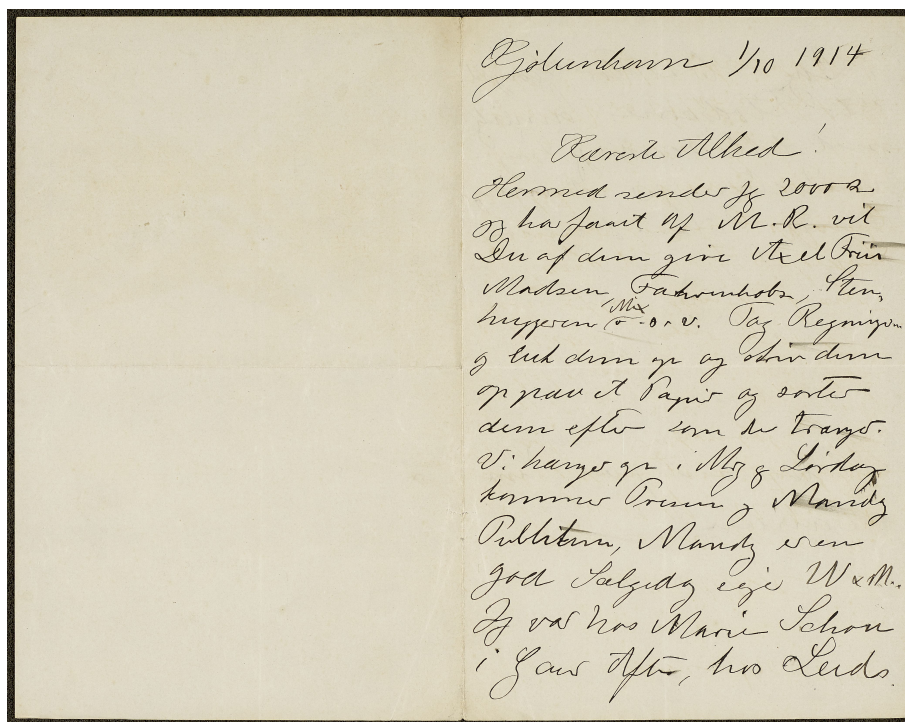 Kjøbenhavn 1/10 1914
Kæreste Alhed!
Hermed sender jeg 2000 Kr
jeg har faaet af M.R. vil
Du af dem give Axel Friis
Madsen, Fahrenholz, Sten,
huggeren Mix o.s.v. Tag Regninger
og luk dem op og skriv dem
op paa et Papir og sorter
dem efter som de trænger.
Vi hænger op i Mrg og Lørdag
kommer Pressen og Mandag
Publikum, Mandag er en
god Salgsdag siger W & M.
Jeg var hos Marie Schou
i Gaar Aftes, hos Leuds